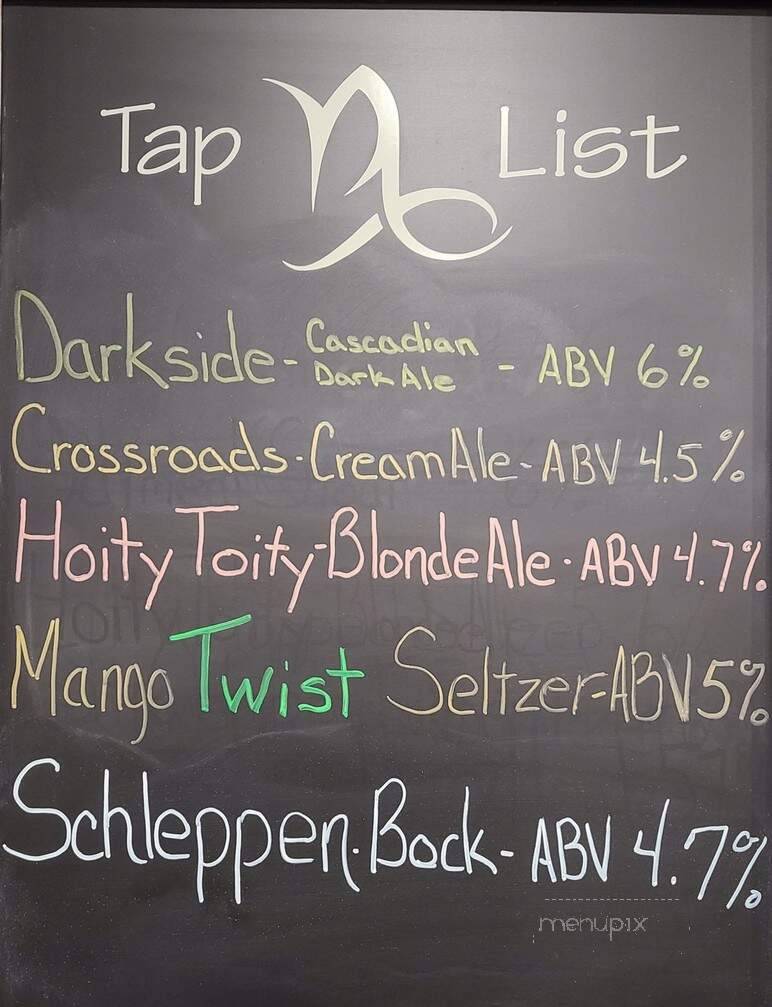 Tap List
Darkside - Cascadian Dark Ale - ABV 6%
Crossroads - Cream Ale - ABV 4.5%
Hoity Toity - Blonde Ale - ABV 4.7%
Mango Twist Seltzer - ABV 5%
Schleppen - Bock - ABV 4.7%
menupix